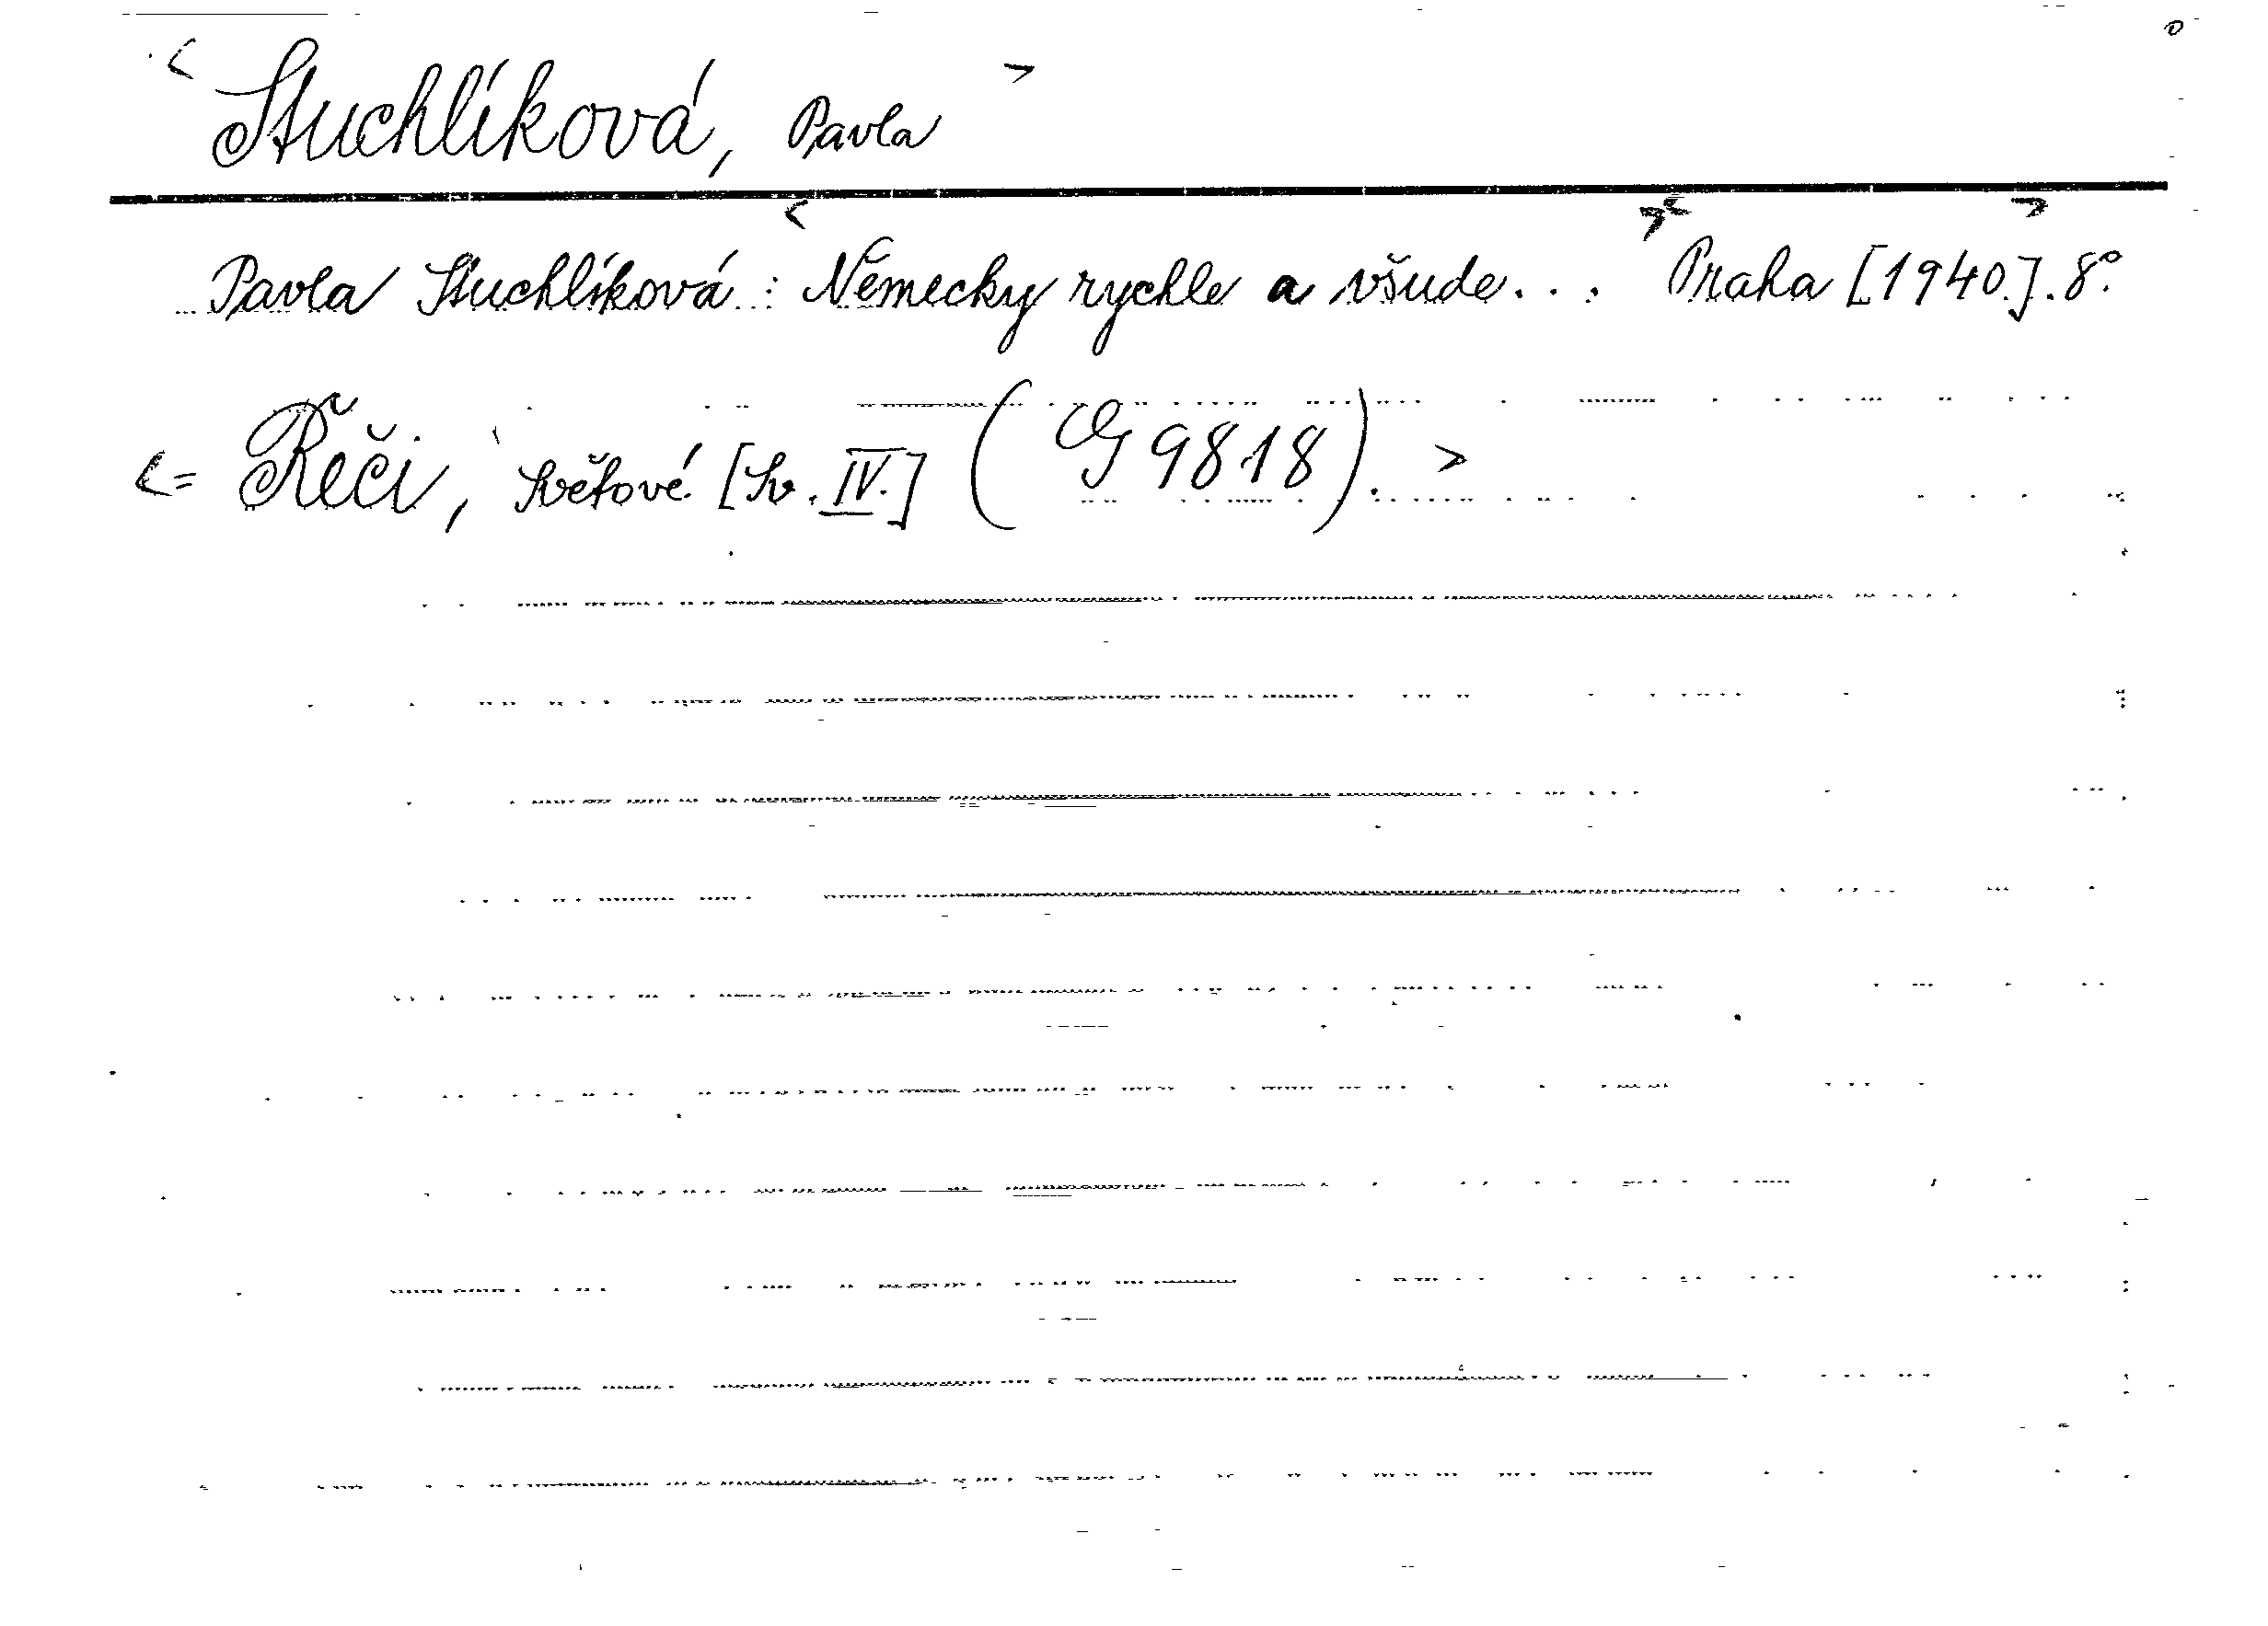 < Stuchlíková, Pavla >
Pavla Stuchlíková : < Německy rychle a všude... > < Praha [1940]. 8° >
< = Řeči, světové [Sv. IV.] (G 9818). >